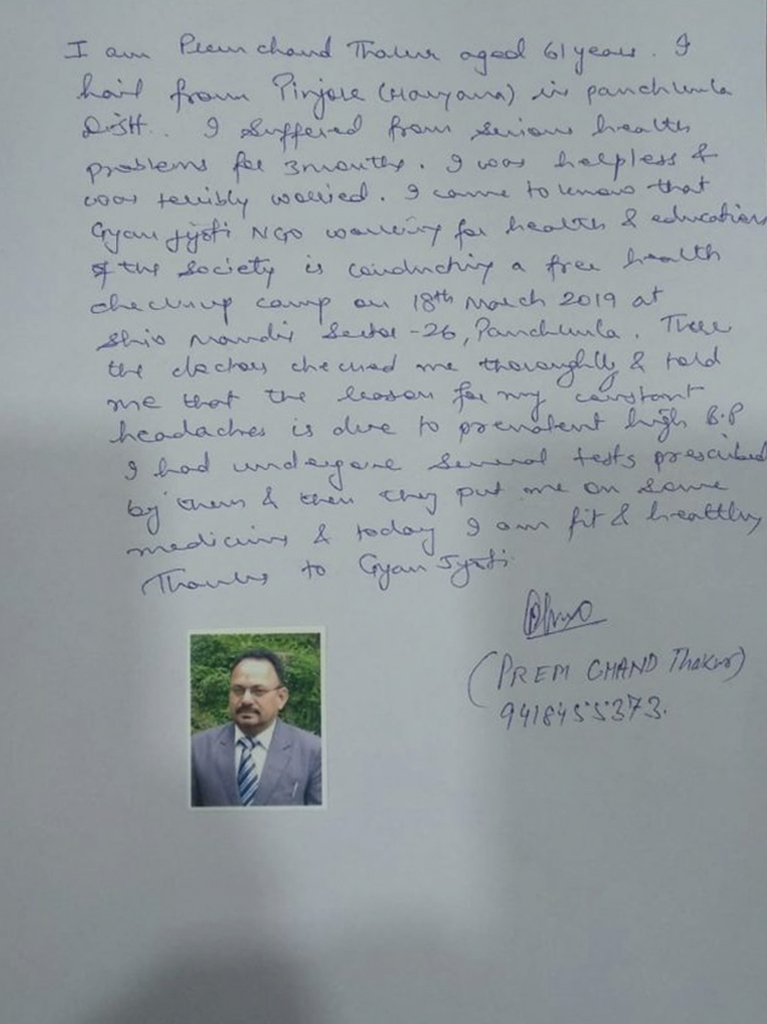 I am Prem chand Thakur aged 61 years. I
hail from Pinjore (Haryana) in panchkula
Distt. I suffered from serious health
problems for 3 months. I was helpless &
was terribly worried. I came to know that
Gyan Jyoti NGO working for health & education
of the Society is conducting a free health
checkup camp on 18th March 2019 at
Shiv Mandir Sector-26, Panchkula. There
the doctors checked me thoroughly & told
me that the reason for my constant
headaches is due to prevalent high B.P
I had undergone several tests prescribed
by them & then they put me on some
medicines & today I am fit & healthy
Thanks to Gyan Jyoti
(PREM CHAND Thakur)
9418455373.